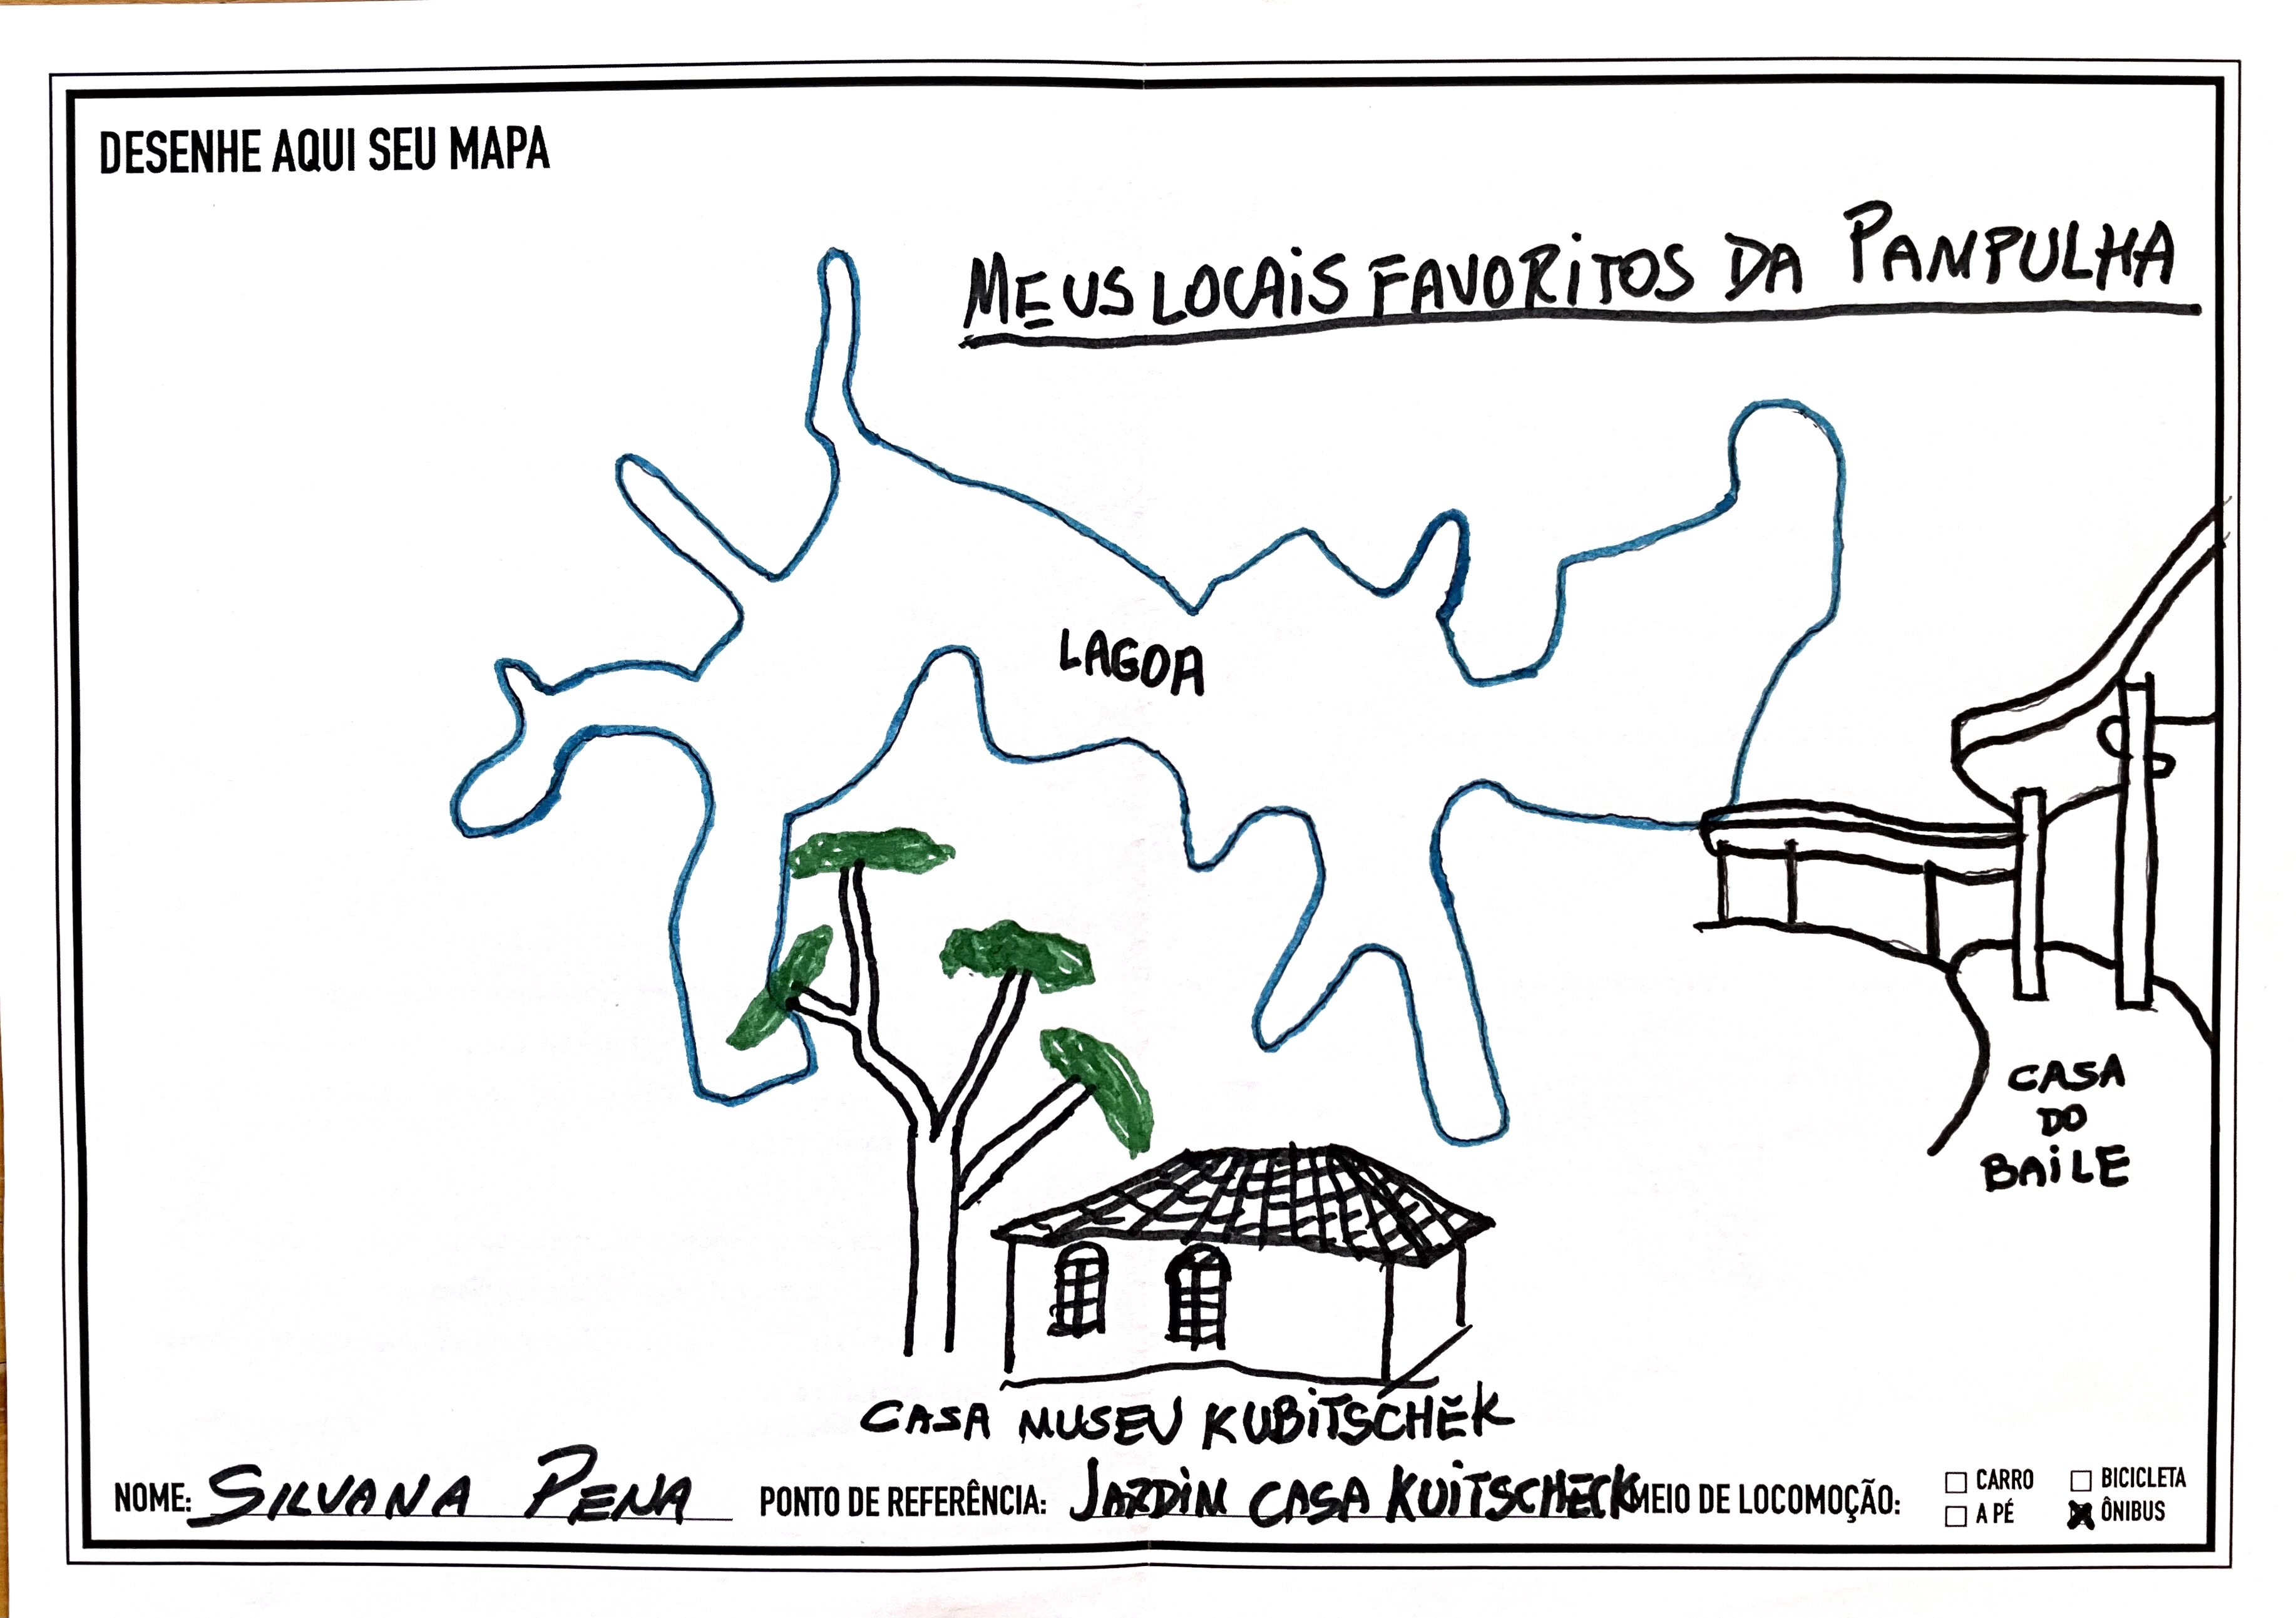 DESENHE AQUI SEU MAPA
MEUS LOCAIS FAVORITOS DA PAMPULHA
LAGOA
CASA
DO
BAILE
CASA MUSEU KUBITSCHĔK
NOME: SILVANA PENA PONTO DE REFERÊNCIA: JARDIM CASA KUITSCHECK MEIO DE LOCOMOÇÃO: CARRO BICICLETA
A PÉ ÔNIBUS